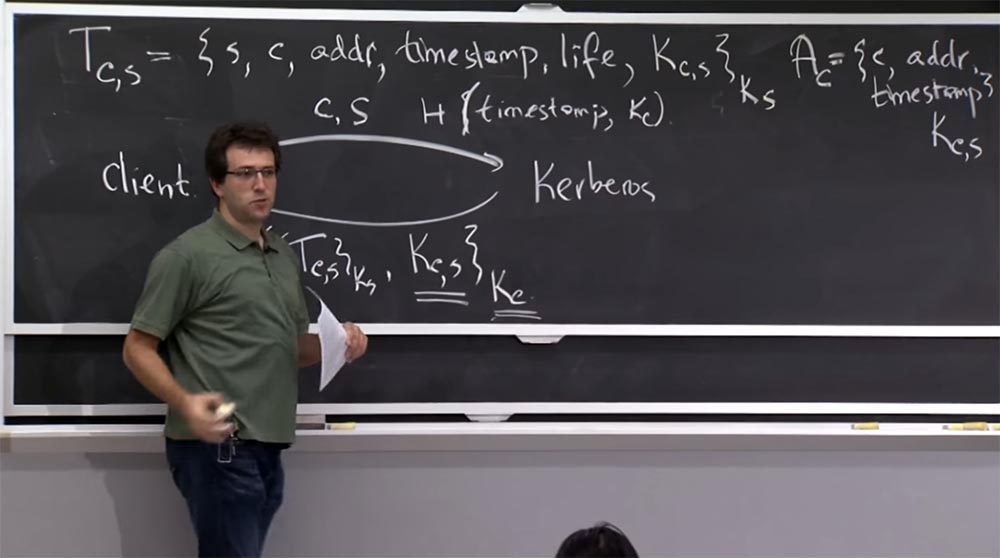 T_{c,s} = { s, c, addr, timestamp, life, K_{c,s} }_{K_s}
A_c = { c, addr, timestamp }_{K_{c,s}}
c, S H (timestamp, K_c).
client Kerberos
T_{c,s} }_{K_s}, K_{c,s} }_{K_c}